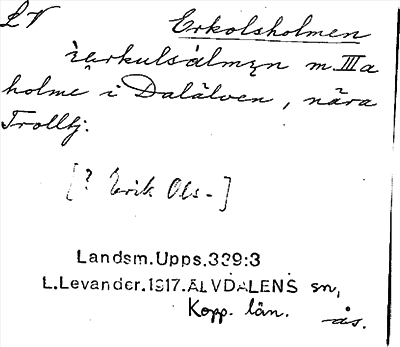 LV Erkolsholmen
i̯ärkulsålmęn m. IIIa
holme i Dalälven, nära
Trolltj.
[? Erik Ols-]
Landsm.Upps.339:3
L.Levander.1917.ÄLVDALENS sn,
Kopp. län.
ås.